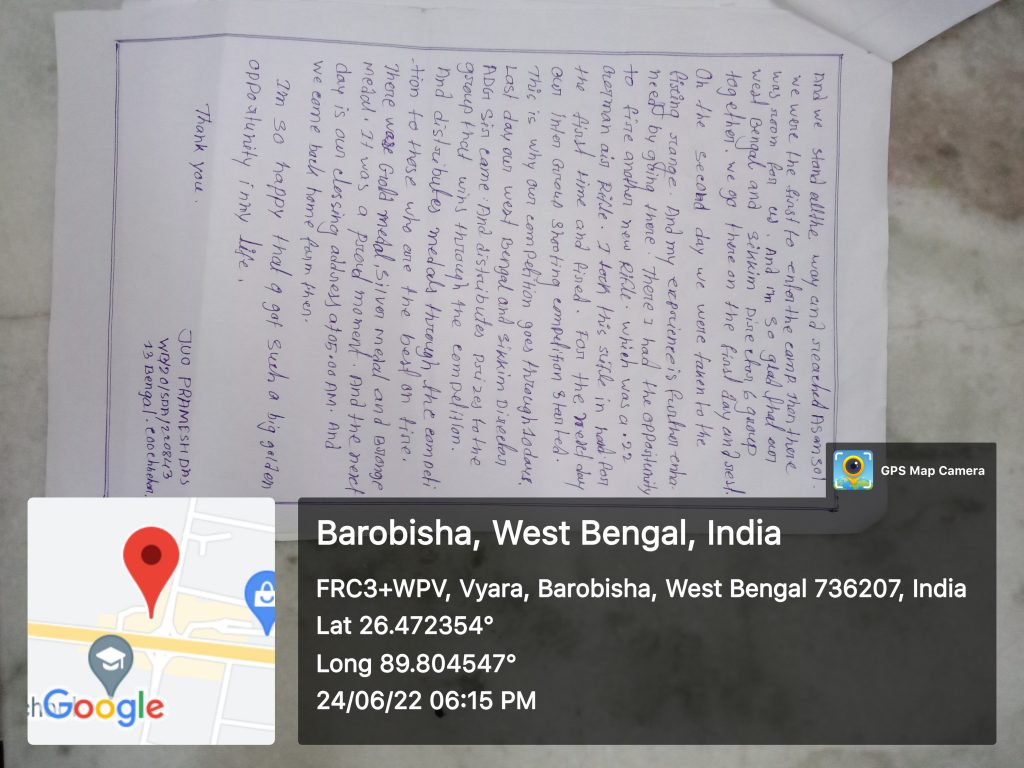 and we stand all the way and reached Asansol.
we were the first to enter the camp then there
was room for us. And im so glad that our
west Bengal and sikkim Direction 6 group
together. we go there on the first day and rest.
On the second day we were taken to the
firing range. And my experience is
need by going there. There I had the opportunity
to fire another new Rifle. which was a .22
German air Rifle. I took this rifle in hand for
the first time and fired. For the next day
our inter Group Shooting competition started.
This is why our competition goes through 10 days.
Last day our west Bengal and Sikkim Director
ADG Sir came. And distributes prizes to the
group that wins through the competition.
And distributes medals through the competi
-tion to those who are the best on fire.
There was Gold medal Silver medal and Bronze
medal. It was a proud moment. And the next
day is our clossing address at 05.00 AM. And
we come back home form then.
I'm so happy that a got such a big golden
opportunity in my life.
Thank you.
JUO PRAMESH DAS
WB20/SDN/220843
13 Bengal. Coochbehar.
GPS Map Camera
Barobisha, West Bengal, India
FRC3+WPV, Vyara, Barobisha, West Bengal 736207, India
Lat 26.472354°
Long 89.804547°
24/06/22 06:15 PM
Google